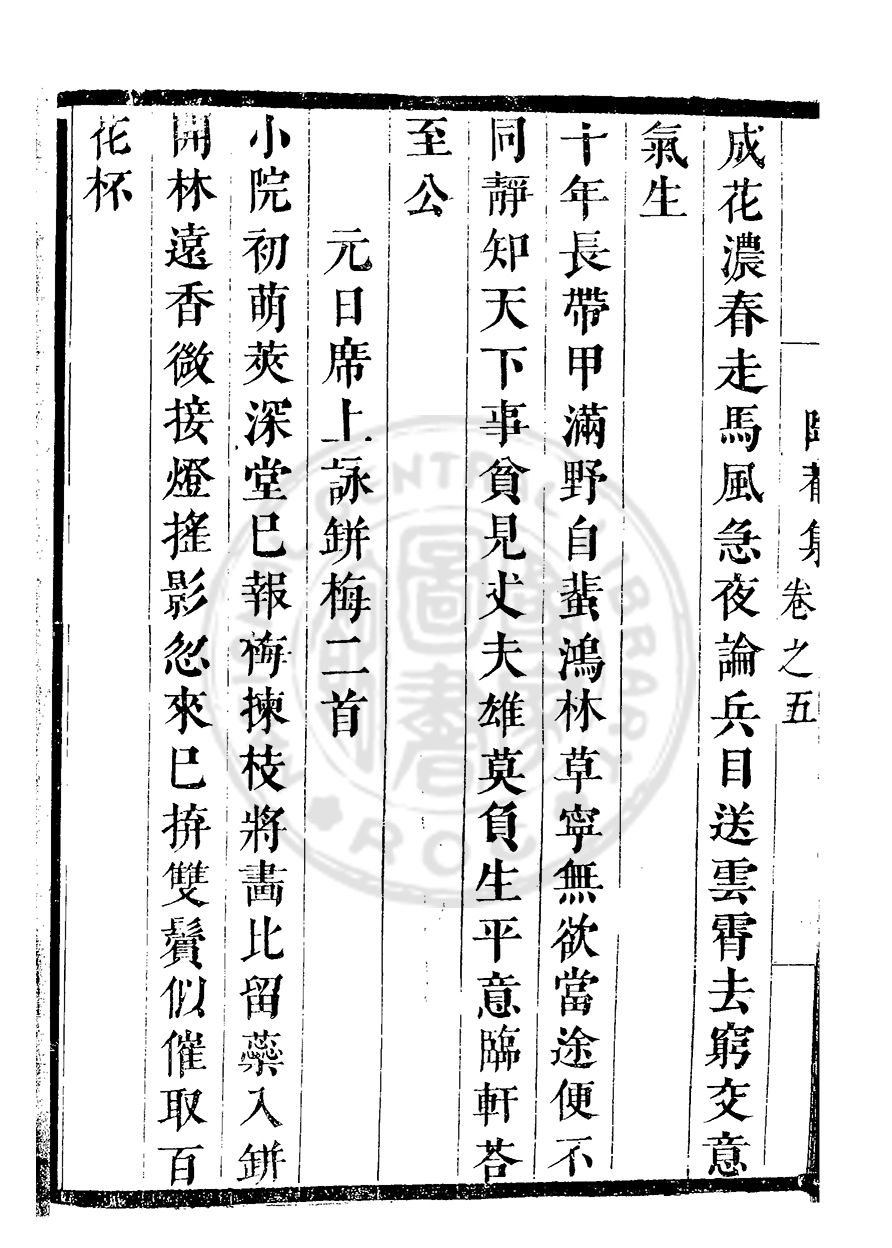 集卷之五
成花濃春走馬風急夜論兵目送雲霄去窮交意
氣生
十年長帶甲滿野自蜚鴻林草寧無欲當途便不
同靜知天下事貧見丈夫雄莫負生平意臨軒荅
至公
元日席上詠缾梅二首
小院初萌莢深堂巳報梅揀枝將畵比留蘂入缾
開林遠香微接燈搖影忽來巳拚雙鬢似催取百
花杯